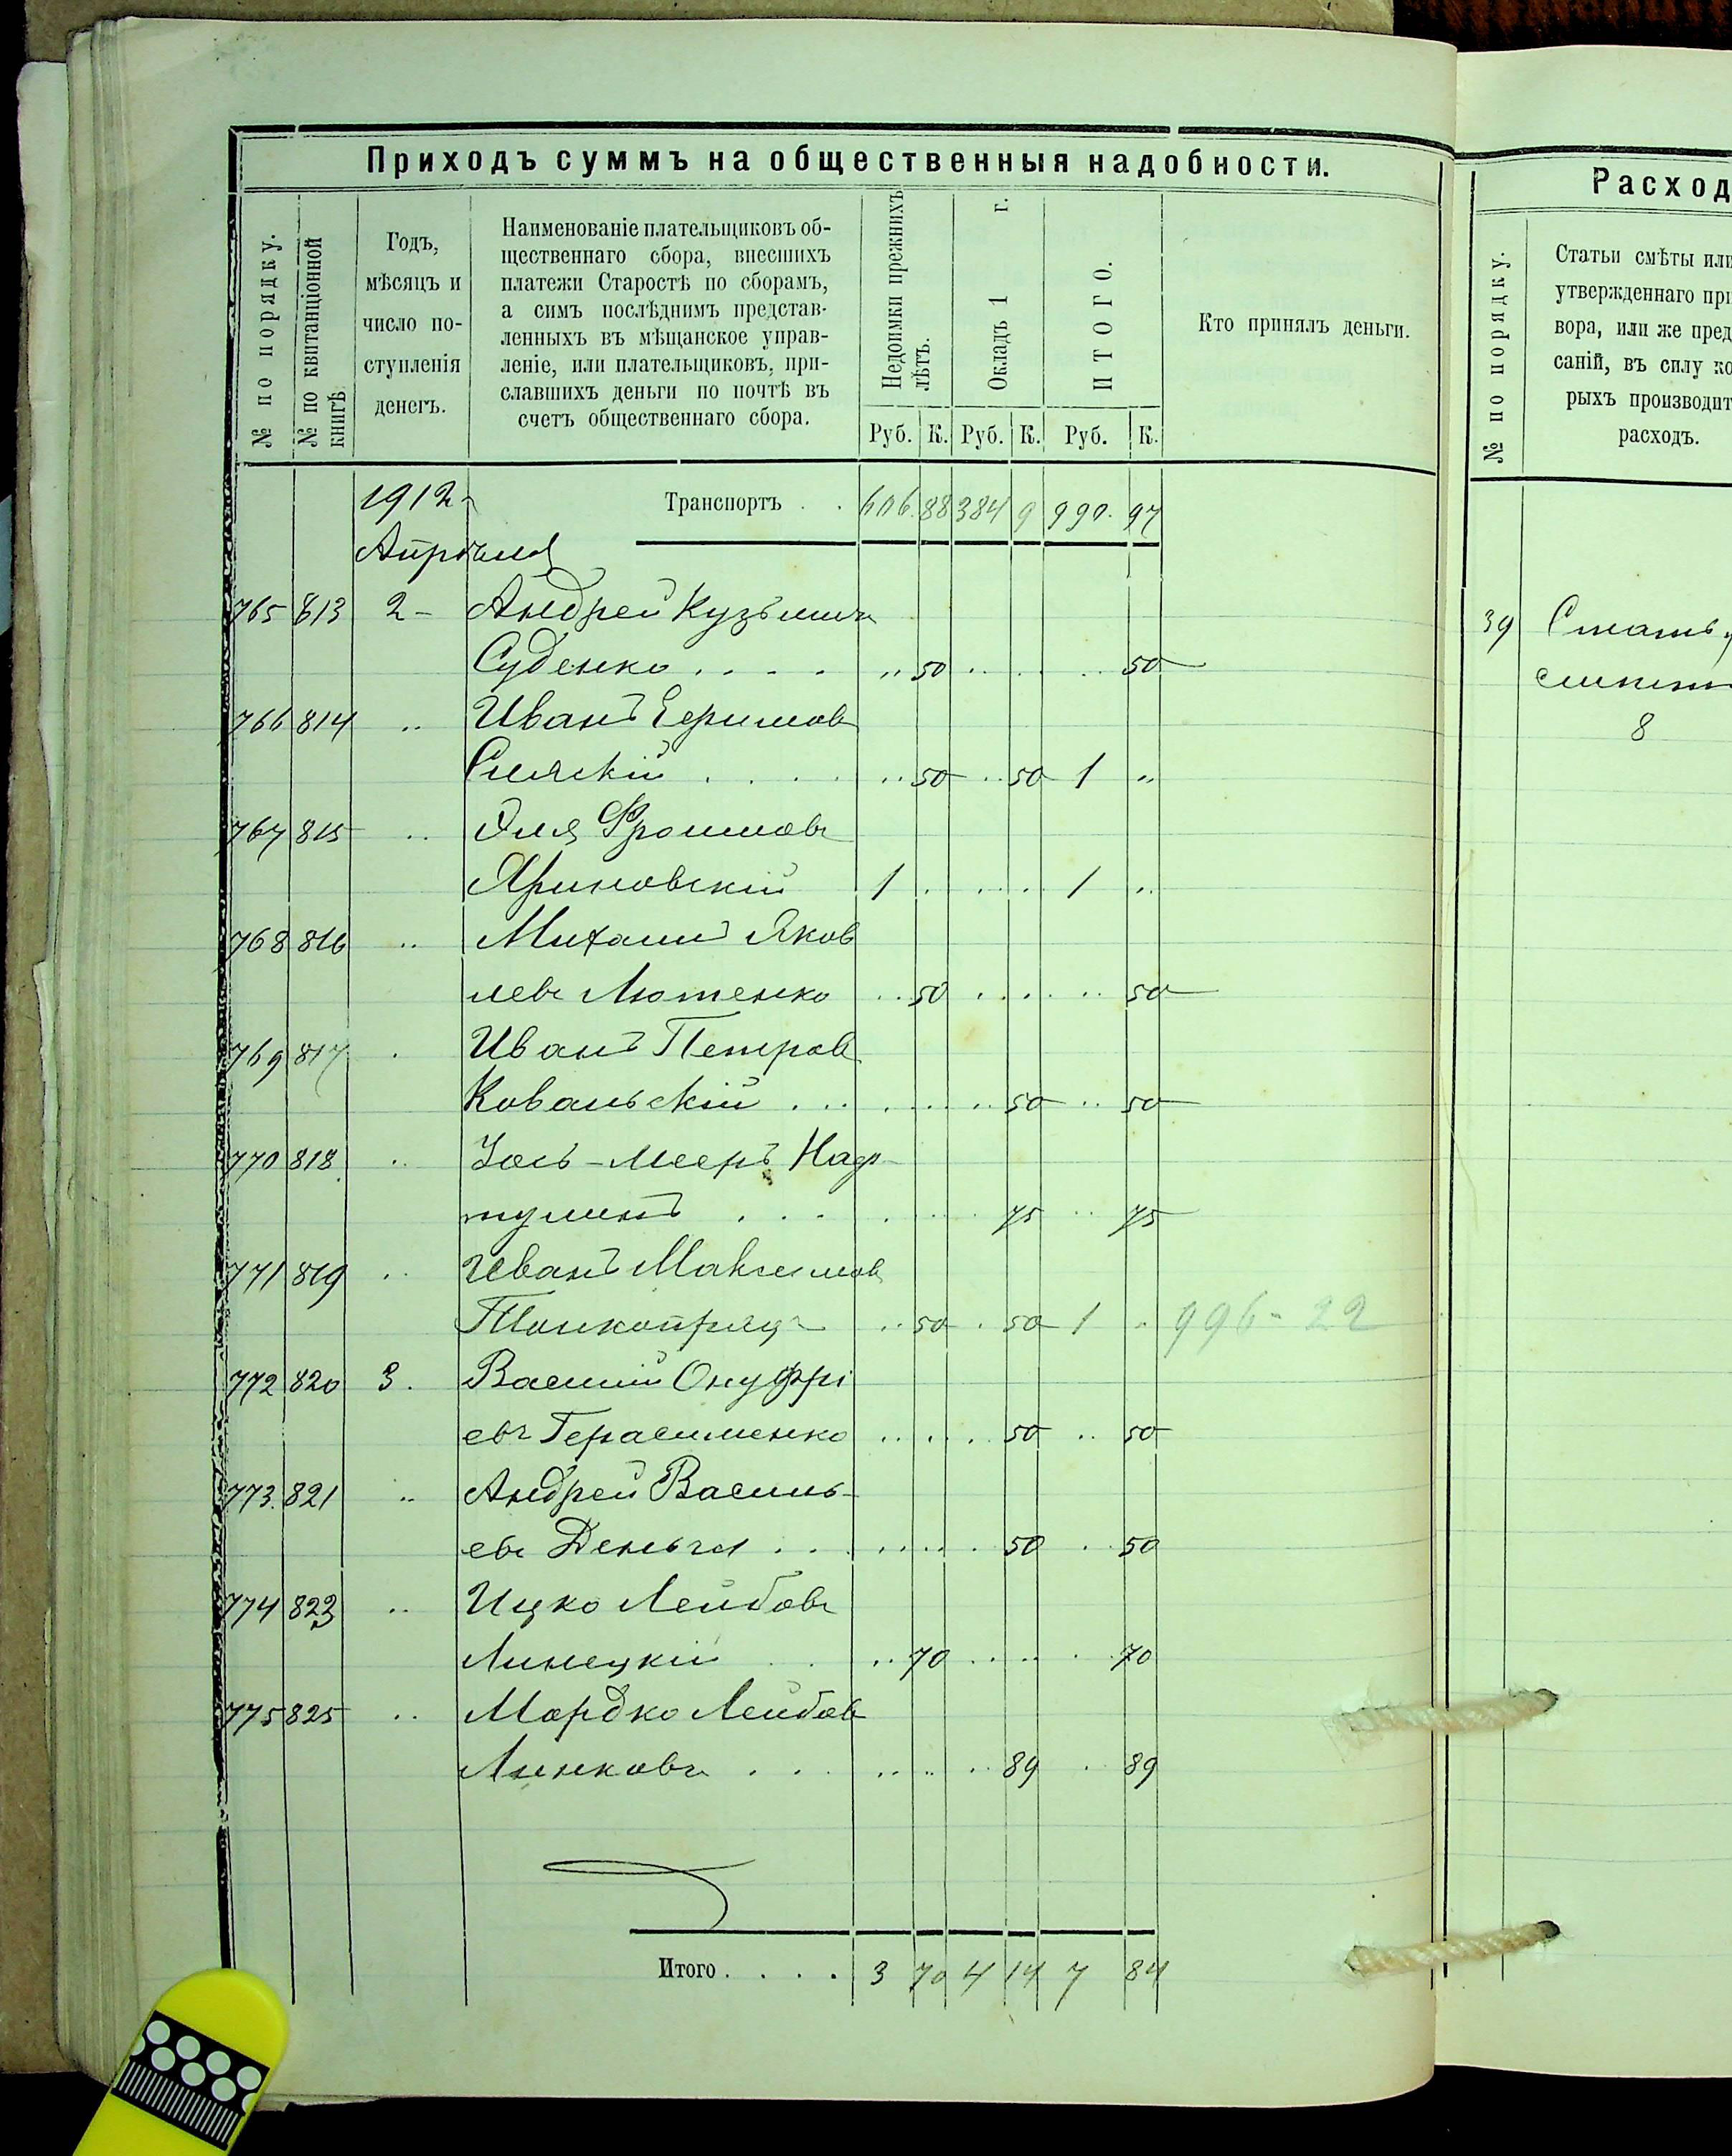 Приходъ суммъ на общественныя надобности.
№ по порядку.
№ по квитанціонной книгѣ
Годъ,
мѣсяцъ и
число по-
ступленія
денегъ.
Наименованіе плательщиковъ об-
щественнаго сбора, внесшихъ
платежи Старостѣ по сборамъ,
а симъ послѣднимъ представ-
ленныхъ въ мѣщанское управ-
леніе, или плательщиковъ, при-
славшихъ деньги по почтѣ въ
счетъ общественнаго сбора.
Недоимки прежнихъ лѣтъ.
Окладъ 1 г.
ИТОГО.
Кто принялъ деньги.
Руб. К. Руб. К. Руб. К.
1912 Транспортъ . . 606. 88 384 9 990. 97
Апрѣля
765 813 2 - Андрей Кузьмичъ
Суденко . . . . „ 50 .. . . .. 50
766 814 .. Иванъ Ефимовъ
. . . . .. 50 .. 50 1 „
767 815 .. Эля Фроимовъ
Яриновскій 1 . . . . 1 ..
768 816 .. Михаилъ Яков
левъ Лютенко .. 50 . . . . .. 50
769 817 . Иванъ Петров
Ковальскій . . . . . . .. 50 .. 50
770 818 .. Іось-Мееръ Наф-
тулинъ . . . . . . . 75 .. 75
771 819 .. Иванъ Максимов
Тонкопрядъ .. 50 . 50 1 . 996 - 22
772 820 3. Василій Онуфрі
евъ Герасименко . . . . . 50 .. 50
773. 821 .. Андрей Василь-
евъ Деньга . . . . . . . 50 . 50
774 823 .. Ицко Лейбовъ
Линецкій . . .. 70 . . . . . 70
775 825 .. Мордко Лейбов
Линковъ . . . .. .. .. 89 . 89
Итого . . . . 3 70 4 14 7 84
Расход
№ по порядку.
Статьи смѣты или
утвержденнаго при
вора, или же пред
саній, въ силу ко
рыхъ производит
расходъ.
39
8